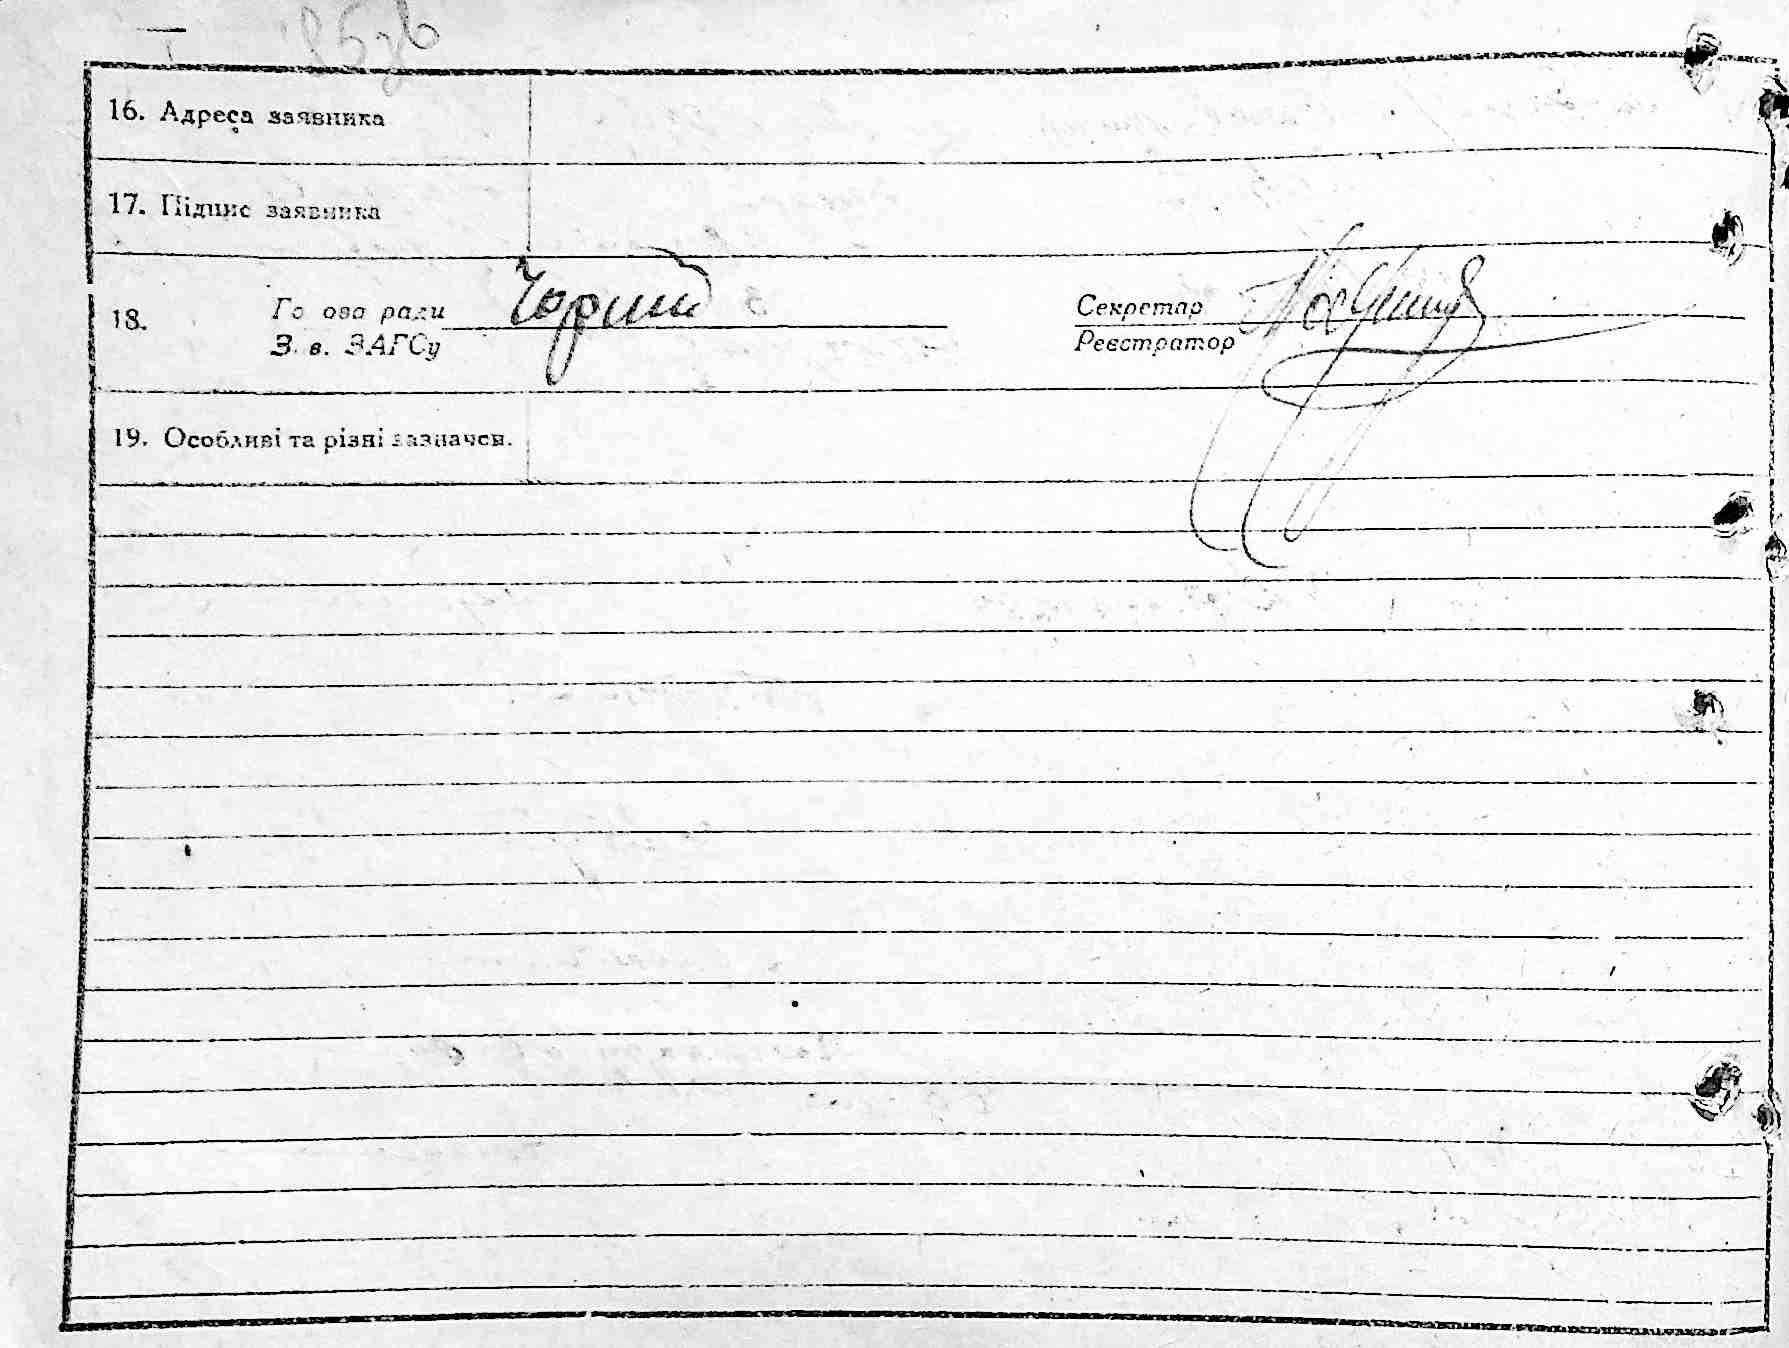 16. Адреса заявника
17. Підпис заявника
18. Го ова ради Чорний Секретар
З. в. ЗАГСу Реєстратор
19. Особливі та різні зазначен.